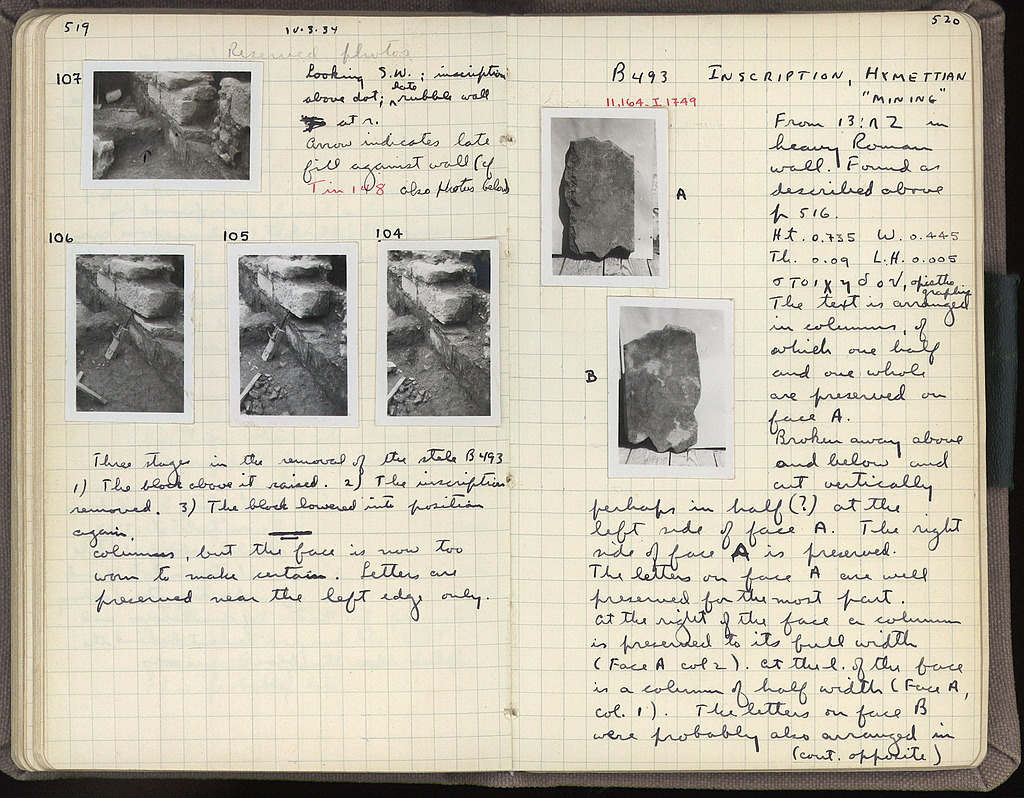 519
10.3.34
Reserved photos
107
Looking S.W.; inscription
above dot; late rubble wall
at r.
Arrow indicates late
fill against wall (cf
Tin 148 also photos below
106
105
104
Three stages in the removal of the stele B493
1) The block above it raised. 2) The inscription
removed. 3) The block lowered into position
again.
columns, but the face is now too
worn to make certain. Letters are
preserved near the left edge only.
520
B493 INSCRIPTION, HYMETTIAN
"MINING"
11,164. I 1749
A
From 13:ΛΖ in
heavy Roman
wall. Found as
described above
p 516.
Ht. 0.735 W. 0.445
Th. 0.09 L.H. 0.005
στοιχηδον, opistho
graphic
The text is arranged
in columns, of
which one half
and one whole
are preserved on
face A.
B
Broken away above
and below and
cut vertically
perhaps in half (?) at the
left side of face A. The right
side of face A is preserved.
The letters on face A are well
preserved for the most part.
At the right of the face a column
is preserved to its full width
(Face A col 2). At the l. of the face
is a column of half width (Face A,
col. 1). The letters on face B
were probably also arranged in
(cont. opposite)